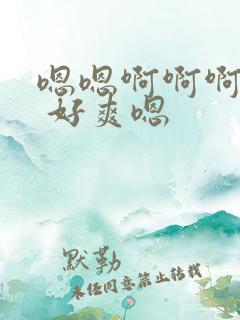 嗯嗯啊啊啊
好爽嗯
默勒
未经同意禁止转载